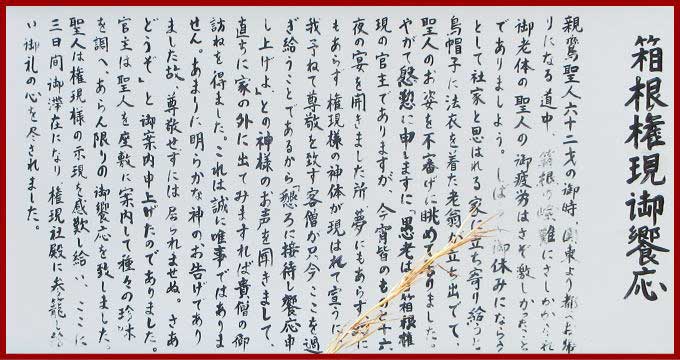 箱根権現御饗応
親鸞聖人六十二才の御時 関東より都へお帰
りになる道中 箱根の嶮難にさしかかられ
御老体の聖人の御疲労はさぞ激しかったこと
でありましよう。しば 御休みになら
として社家と思はれる家 立ち寄り給う
烏帽子に法衣を着た老翁が立ち出でて、
聖人のお姿を不審げに眺めて りました
やがて慇懃に申しますに「愚老は 箱根権
現の官主でありますが、今宵皆のもの と十六
夜の宴を開きました所、夢にもあらず、 に
もあらず権現様の神体が現はれて宣うに
我かねて尊敬を致す客僧が只今ここを過
ぎ給うことであるから「懇ろに接待し饗応申
し上げよ」との神様のお声を聞きまして、
直ちに家の外に出てみますれば貴僧の御
訪ねを得ました。これは誠に唯事ではありま
せん。あまりに明らかな神のお告げであり
ました故、尊敬せずには居られませぬ。さあ
どうぞ。」と御案内申上げたのでありました。
官主は聖人を座敷に案内して種々の珍味
を調へ、あらん限りの御饗応を致しました。
聖人は権現様の示現を感歎し給い、ここに
三日間御滞在になり 権現社殿に参籠し給
い御礼の心を尽されました。